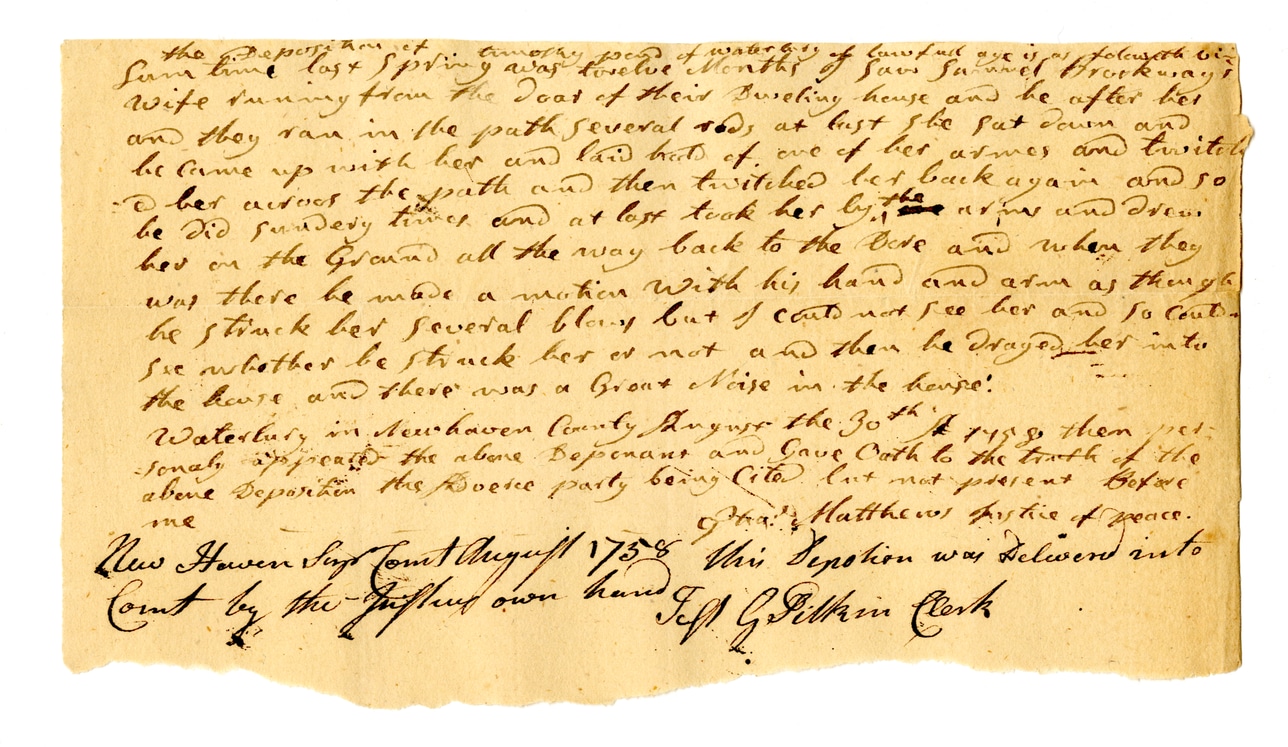 the Deposition of timothy pond of waterbury of lawfull age is as foloweth viz:
Sum time last Spring was twelve Months I Saw Samuel Brockways
wife runing from the doar of their Dweling house and he after her
and they ran in the path Several rods at last She Sat down and
he Came up with her and laid hold of one of her armes and twitch
=d her across the path and then twitched her back again and so
he did Sundery times and at last took her by the arms and drew
her on the Ground all the way back to the Dore and when they
was there he made a motion With his hand and arm as though
he Struck her Several blows but I could not See her and So Could
See whether he Struck her or not and then he draged her into
the house and there was a Great Noise in the house.
Waterbury in Newhaven County August the 30th AD 1758 then per-
-sonaly appeared the above Deponant and Gave Oath to the truth of the
above Deposition the Adverce party being Cited but not present before
me Matthews Justice of peace.
New Haven Supr Court August 1758 this Depotion was Deliverd into
Court by the Justices own hand Test G Pitkin Clerk